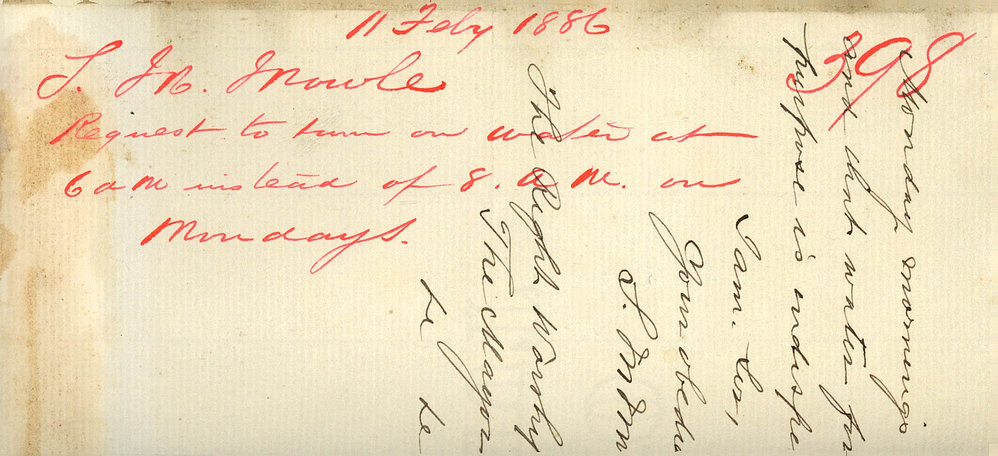 11 Feby 1886
398
S. M. Mowle
Request to turn on water at
6 a m instead of 8. a. M. on
Mondays.
Monday mornings
and that water for
purpose is indispe
I am. Sir,
Your obedie
S. M. M
The Right Worship
The Mayor
&c &c